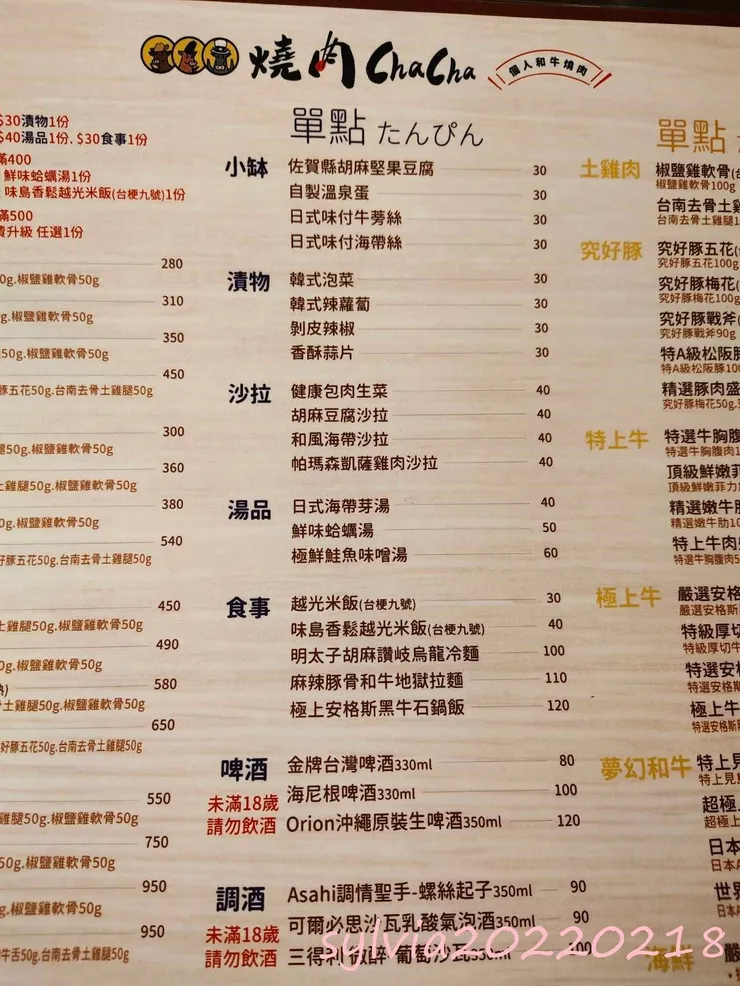 燒肉ChaCha
個人和牛燒肉
$30漬物1份
$40湯品1份. $30食事1份
滿400
鮮味蛤蠣湯1份
味島香鬆越光米飯(台梗九號)1份
滿500
升級 任選1份
280
0g.椒鹽雞軟骨50g
310
g.椒鹽雞軟骨50g
350
50g.椒鹽雞軟骨50g
450
豚五花50g.台南去骨土雞腿50g
300
腿50g.椒鹽雞軟骨50g
360
土雞腿50g.椒鹽雞軟骨50g
380
0g.椒鹽雞軟骨50g
540
好豚五花50g.台南去骨土雞腿50g
450
土雞腿50g.椒鹽雞軟骨50g
490
0g.椒鹽雞軟骨50g
580
土雞腿50g.椒鹽雞軟骨50g
650
好豚五花50g.台南去骨土雞腿50g
550
雞腿50g.椒鹽雞軟骨50g
750
50g.椒鹽雞軟骨50g
950
g.椒鹽雞軟骨50g
950
牛舌50g.台南去骨土雞腿50g
單點 たんぴん
小缽 佐賀縣胡麻堅果豆腐 30
自製溫泉蛋 30
日式味付牛蒡絲 30
日式味付海帶絲 30
漬物 韓式泡菜 30
韓式辣蘿蔔 30
剝皮辣椒 30
香酥蒜片 30
沙拉 健康包肉生菜 40
胡麻豆腐沙拉 40
和風海帶沙拉 40
帕瑪森凱薩雞肉沙拉 40
湯品 日式海帶芽湯 40
鮮味蛤蠣湯 50
極鮮鮭魚味噌湯 60
食事 越光米飯(台梗九號) 30
味島香鬆越光米飯(台梗九號) 40
明太子胡麻讚岐烏龍冷麵 100
麻辣豚骨和牛地獄拉麵 110
極上安格斯黑牛石鍋飯 120
啤酒 金牌台灣啤酒330ml 80
未滿18歲 海尼根啤酒330ml 100
請勿飲酒 Orion沖繩原裝生啤酒350ml 120
調酒 Asahi調情聖手-螺絲起子350ml 90
未滿18歲 可爾必思沙瓦乳酸氣泡酒350ml 90
請勿飲酒 三得利 微醉 葡萄沙瓦350ml 100
單點
土雞肉 椒鹽雞軟骨
椒鹽雞軟骨100g
台南去骨土雞
台南去骨土雞腿1
究好豚 究好豚五花
究好豚五花100g
究好豚梅花
究好豚梅花100g
究好豚戰斧
究好豚戰斧90g
特A級松阪豚
特A級松阪豚10
精選豚肉盛
究好豚梅花50g.
特上牛 特選牛胸腹
特選牛胸腹肉1
頂級鮮嫩菲
頂級鮮嫩菲力1
精選嫩牛肋
精選嫩牛肋10
特上牛肉
特選牛胸腹肉5
極上牛 嚴選安格
嚴選安格斯
特級厚切
特級厚切牛
特選安
特選安格斯
極上牛
特選安格斯
夢幻和牛 特上見
特上見
超極
超極上
日本
日本A
世界
日本A
海鮮 嚴
sylvia20220218